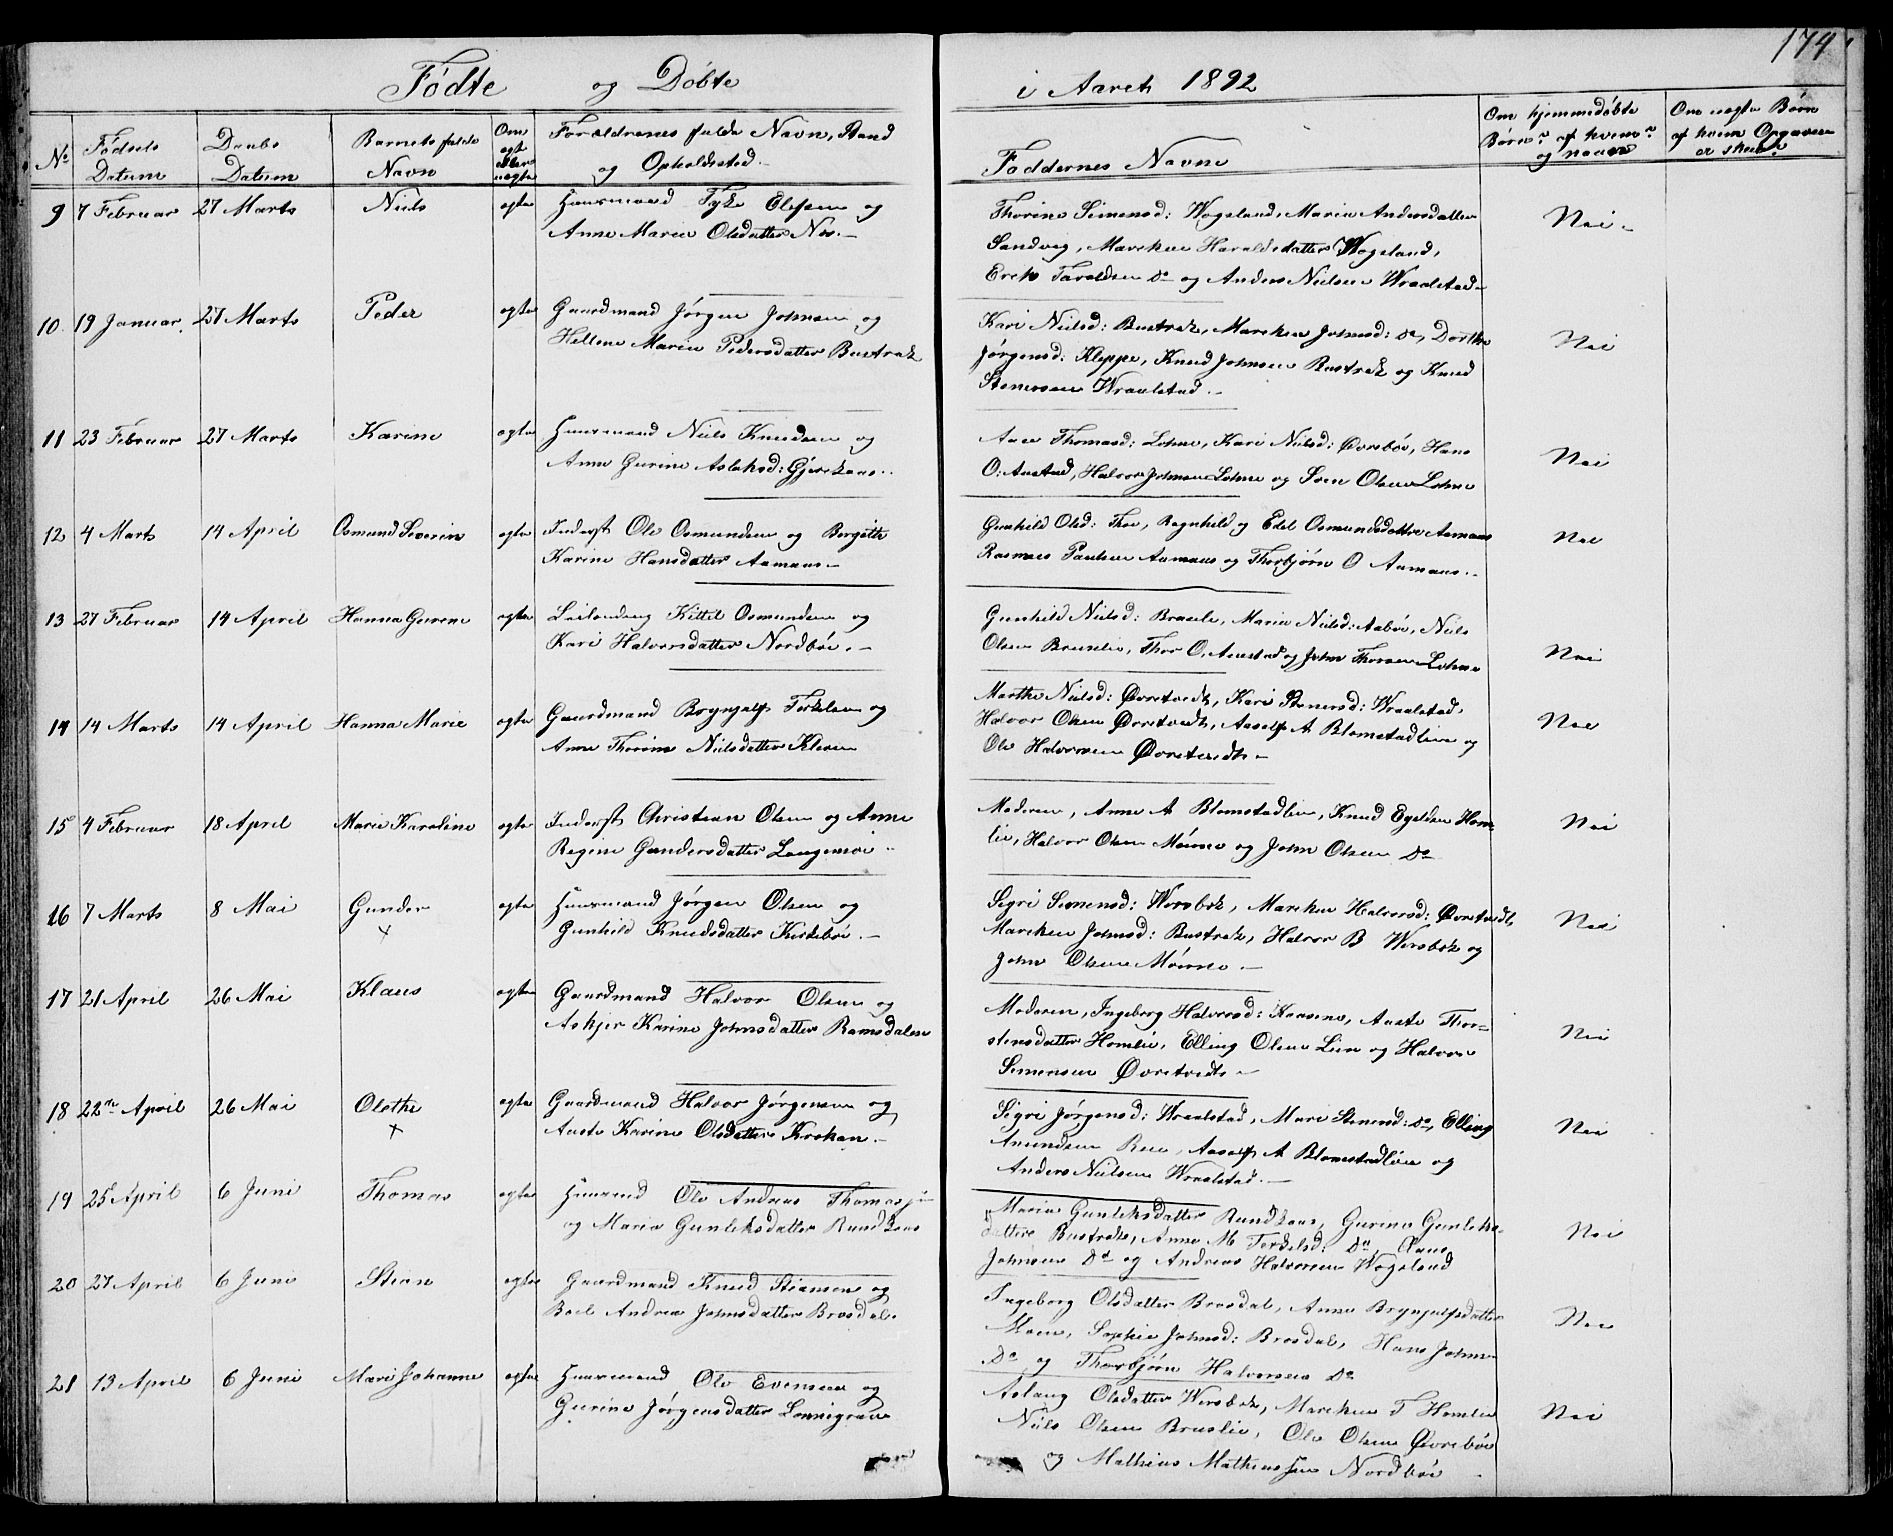 174
Fødte og Døbte i Aaret 1892
No Fødsels Datum Daabs Datum Barnets fulde Navn Om ægte eller uægte Forældrenes fulde Navn, Stand og Opholdssted. Faddernes Navne Om hjemmedøbte Børn: af hvem og naar Om uægte Børn af hvem Opgaven er skeet
9 7 Februar 27 Marts Niels ægte Huusmand Tyke Olssen og
Anne Marie Olsdatter Næs.
Thorine Simensd: Wogsland, Maria Andersdatter
Sandvig, Mareken Haraldsdatter Wogsland,
Erik Taraldsen Do og Anders Nielsen Wraalstad
Nei
10. 19 Januar. 27 Marts Peder ægte Gaardmand Jørgen Johnsen og
Hellene Marie Pedersdatter Bustrak
Kari Nielsd: Bustrak, Mareken Johnsd: Do, Dorthe
Jørgensd: Kleppe, Knud Johnsen Bustrak og Knud
Stenersen Wraalstad.
Nei
11 23 Februar 27 Marts Karine ægte Huusmand Niels Knudsen og
Anne Gurine Aslaksd: Gjerekaas.
Aase Thomasd: Lohne, Kari Nielsd: Øvrebøe, Hans
O. Austad, Halvor Johnsen Lohne og Sven Olsen Lohne
Nei
12 4 Marts 14 April Osmund Severin ægte Inderst Ole Osmundsen og Bergitte
Karine Hansdatter Aamaas
Gunhild Olsd: Thoe, Ragnhild og Edel Osmundsdatter Aamaas
Rasmus Paulsen Aamaas og Thorbjørn O Aamaas.
Nei
13 27 Februar 14 April Hanna Gurene ægte Leilending Kittil Osmundsen og
Kari Halvorsdatter Nordbøe.
Gunhild Nielsd: Braslie, Maria Nielsd: Aabøe, Niels
Olsen Bruslie, Thor O. Austad og John Thorsen Lohne
Nei
14 14 Marts 14 April Hanna Marie ægte Gaardmand Brynjulf Terkelsen og
Anne Thorine Nielsdatter Kleven
Marthe Nielsd: Øvretvedt, Kari Stenersd: Wraalstad,
Halvor Olsen Øvretvedt, Aasulf A Blomstadlien og
Ole Halvorsen Øvretvedt
Nei
15 4 Februar 18 April Marie Karoline ægte Inderst Christian Olsen og Anne
Regine Gundersdatter Langemoe
Moderen, Anne A Blomstadlien, Knud Egeldsen Hom-
lie, Halvor Olsen Moursee og John Olsen Do
Nei
16 7 Marts 8 Mai Gunder ægte Huusmand Jørgen Olsen og
x Gunhild Knudsdatter Kirkebøe.
Sigri Simensd: Wersbek, Mareken Halvorsd: Øvretvedt,
Mareken Johnsd: Bustrak, Halvor B Wersbek og
John Olsen Moursee
Nei
17 21 April 26 Mai Klaus ægte Gaardmand Halvor Olsen og
Askjer Karine Johnsdatter Ramsdalen
Moderen, Ingeborg Halvorsd: Kaasene, Aaste Thor-
stensdatter Homlie, Elling Olsen Lien og Halvor
Simensen Øvretvedt
Nei
18 22de April 26 Mai Olethe ægte Gaardmand Halvor Jørgensen og
x Aaste Karine Olsdatter Krokan.
Sigri Jørgensd: Wraalstad, Mari Stenersd: Do, Elling
Amundsen Roe, Aasulf A Blomstadlien og
Anders Nielsen Wraalstad.
Nei
19 25 April 6 Juni Thomas ægte Huusmd Ole Andreas Thomassen
og Maria Gunleksdatter Rundkaas
Maria Gunleksdatter Rundkaas, Gurine Gunleks-
datter Bustrak, Anne M Terkelsd: Do, Hans
Johnsen Do og Andreas Halvorsen Wogsland
Nei
20 27 April 6 Juni Stian ægte Gaardmand Knud Stiansen og
Boel Andrea Johnsdatter Brosdal.
Ingeborg Olsdatter Brosdal, Anne Brynjulfsdatter
Moen, Sophie Johnsd: Brosdal, Hans Johns-
Do og Thorbjørn Halvorsen Do
Nei
21 13 April 6 Juni Mari Johanne ægte Huusmand Ole Evensen og
Gurine Jørgensdatter Lonnigrav
Aslaug Olsdatter Wersbek, Mareken T Homlie
Niels Olsen Bruslie, Ole Olsen Øvrebøe
og Mathias Mathiassen Nordbøe
Nei